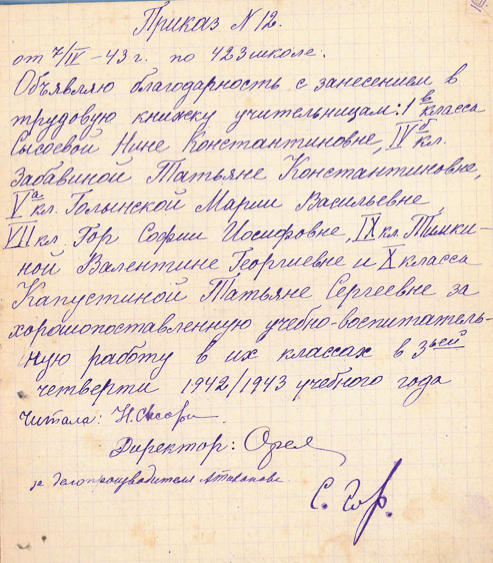 Приказ N 12.
от 7/IV - 43 г. по 423 школе.
Объявляю благодарность с занесением в
трудовую книжку учительницам: 1 в класса
Сысоевой Нине Константиновне, IV б кл.
Забавиной Татьяне Константиновне,
V а кл. Голынской Марии Васильевне,
VII кл. Гор Софии Иосифовне, IX кл. Тимки-
ной Валентине Георгиевне и X класса
Капустиной Татьяне Сергеевне за
хорошопоставленную учебно-воспитатель-
ную работу в их классах в 3ьей
четверти 1942/1943 учебного года
Читала:
Директор:
за делопроизводителя
С. Гор.